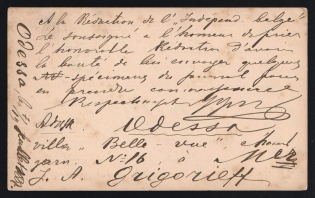 A la Rédaction de l'"Independ. belge"
Le soussigné a l'honneur de prier
l'honorable Rédaction d'avoir
la bonté de lui envoyer quelques
spécimens du journal pour
en prendre connaissance
Respectueus
Adresse Odessa
villa "Belle-vue"
№ 16 à
J. A. Grigorieff
Odessa le